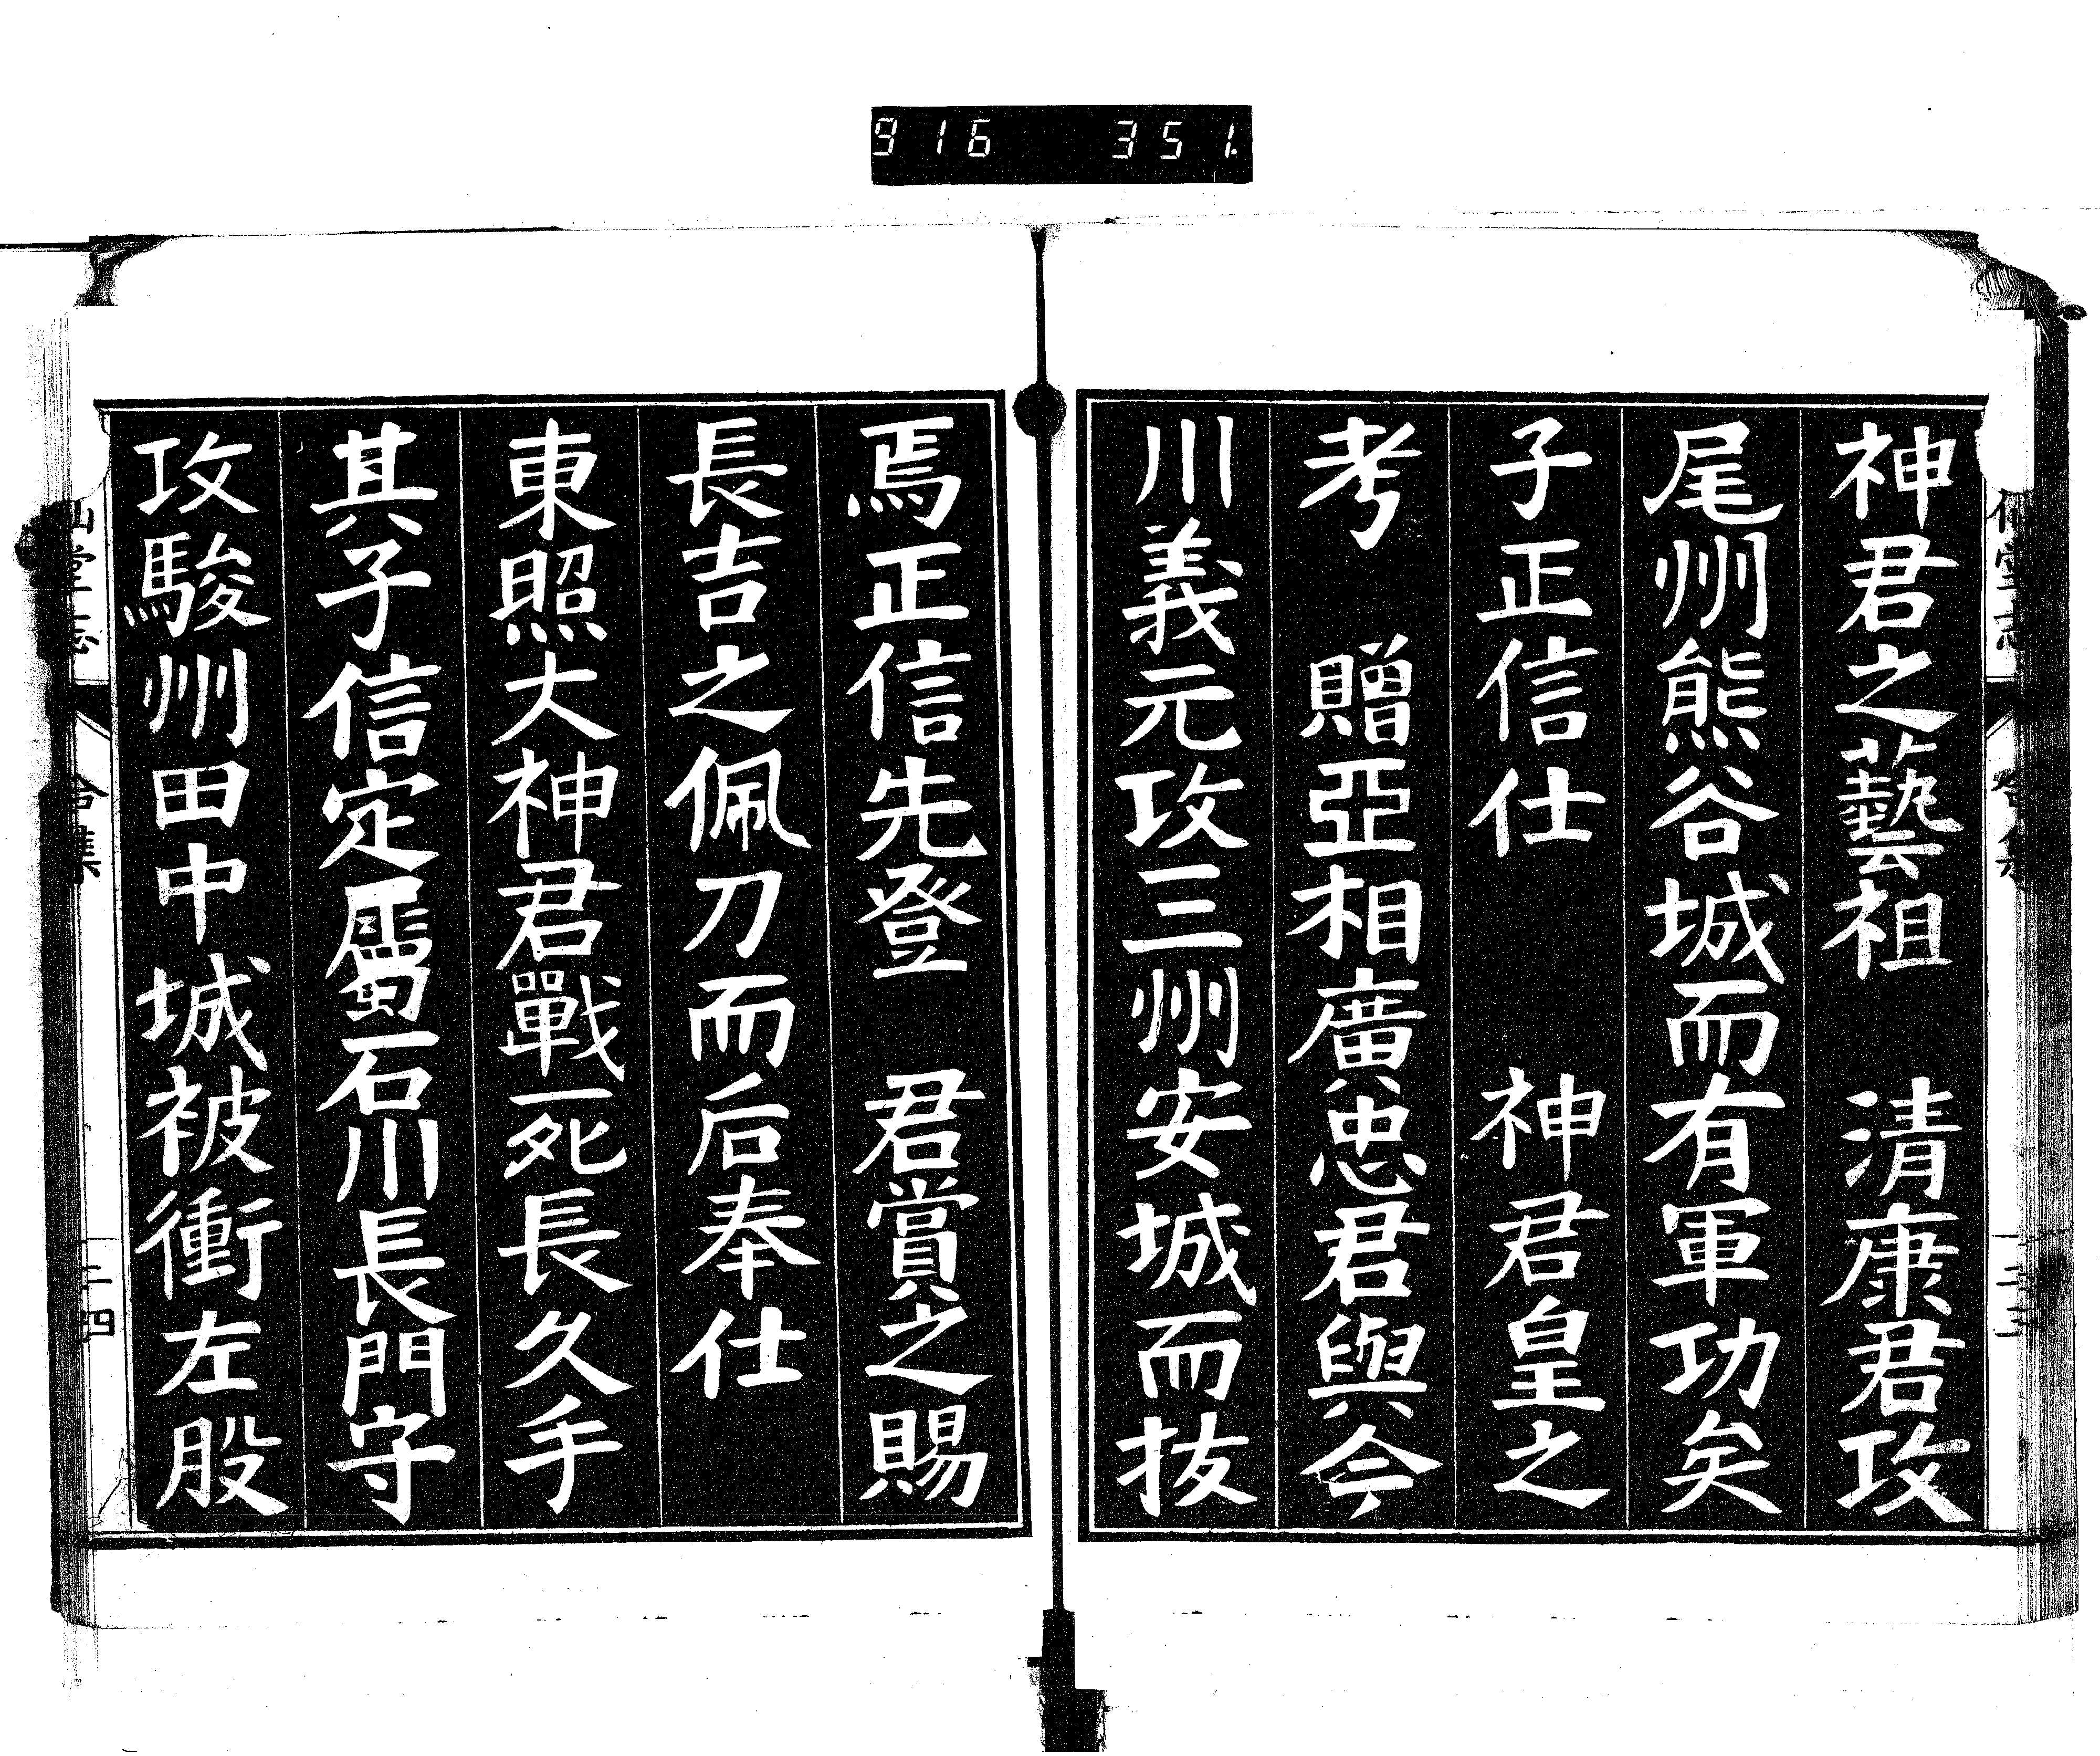 916 351.
神君之藝祖 清康君攻
尾州熊谷城而有軍功矣
子正信仕 神君皇之
考 贈亞相廣忠君與今
川義元攻三州安城而抜
焉正信先登 君賞之賜
長吉之佩刀而后奉仕
東照大神君戰死長久手
其子信定屬石川長門守
攻駿州田中城被衝左股
合集
二四